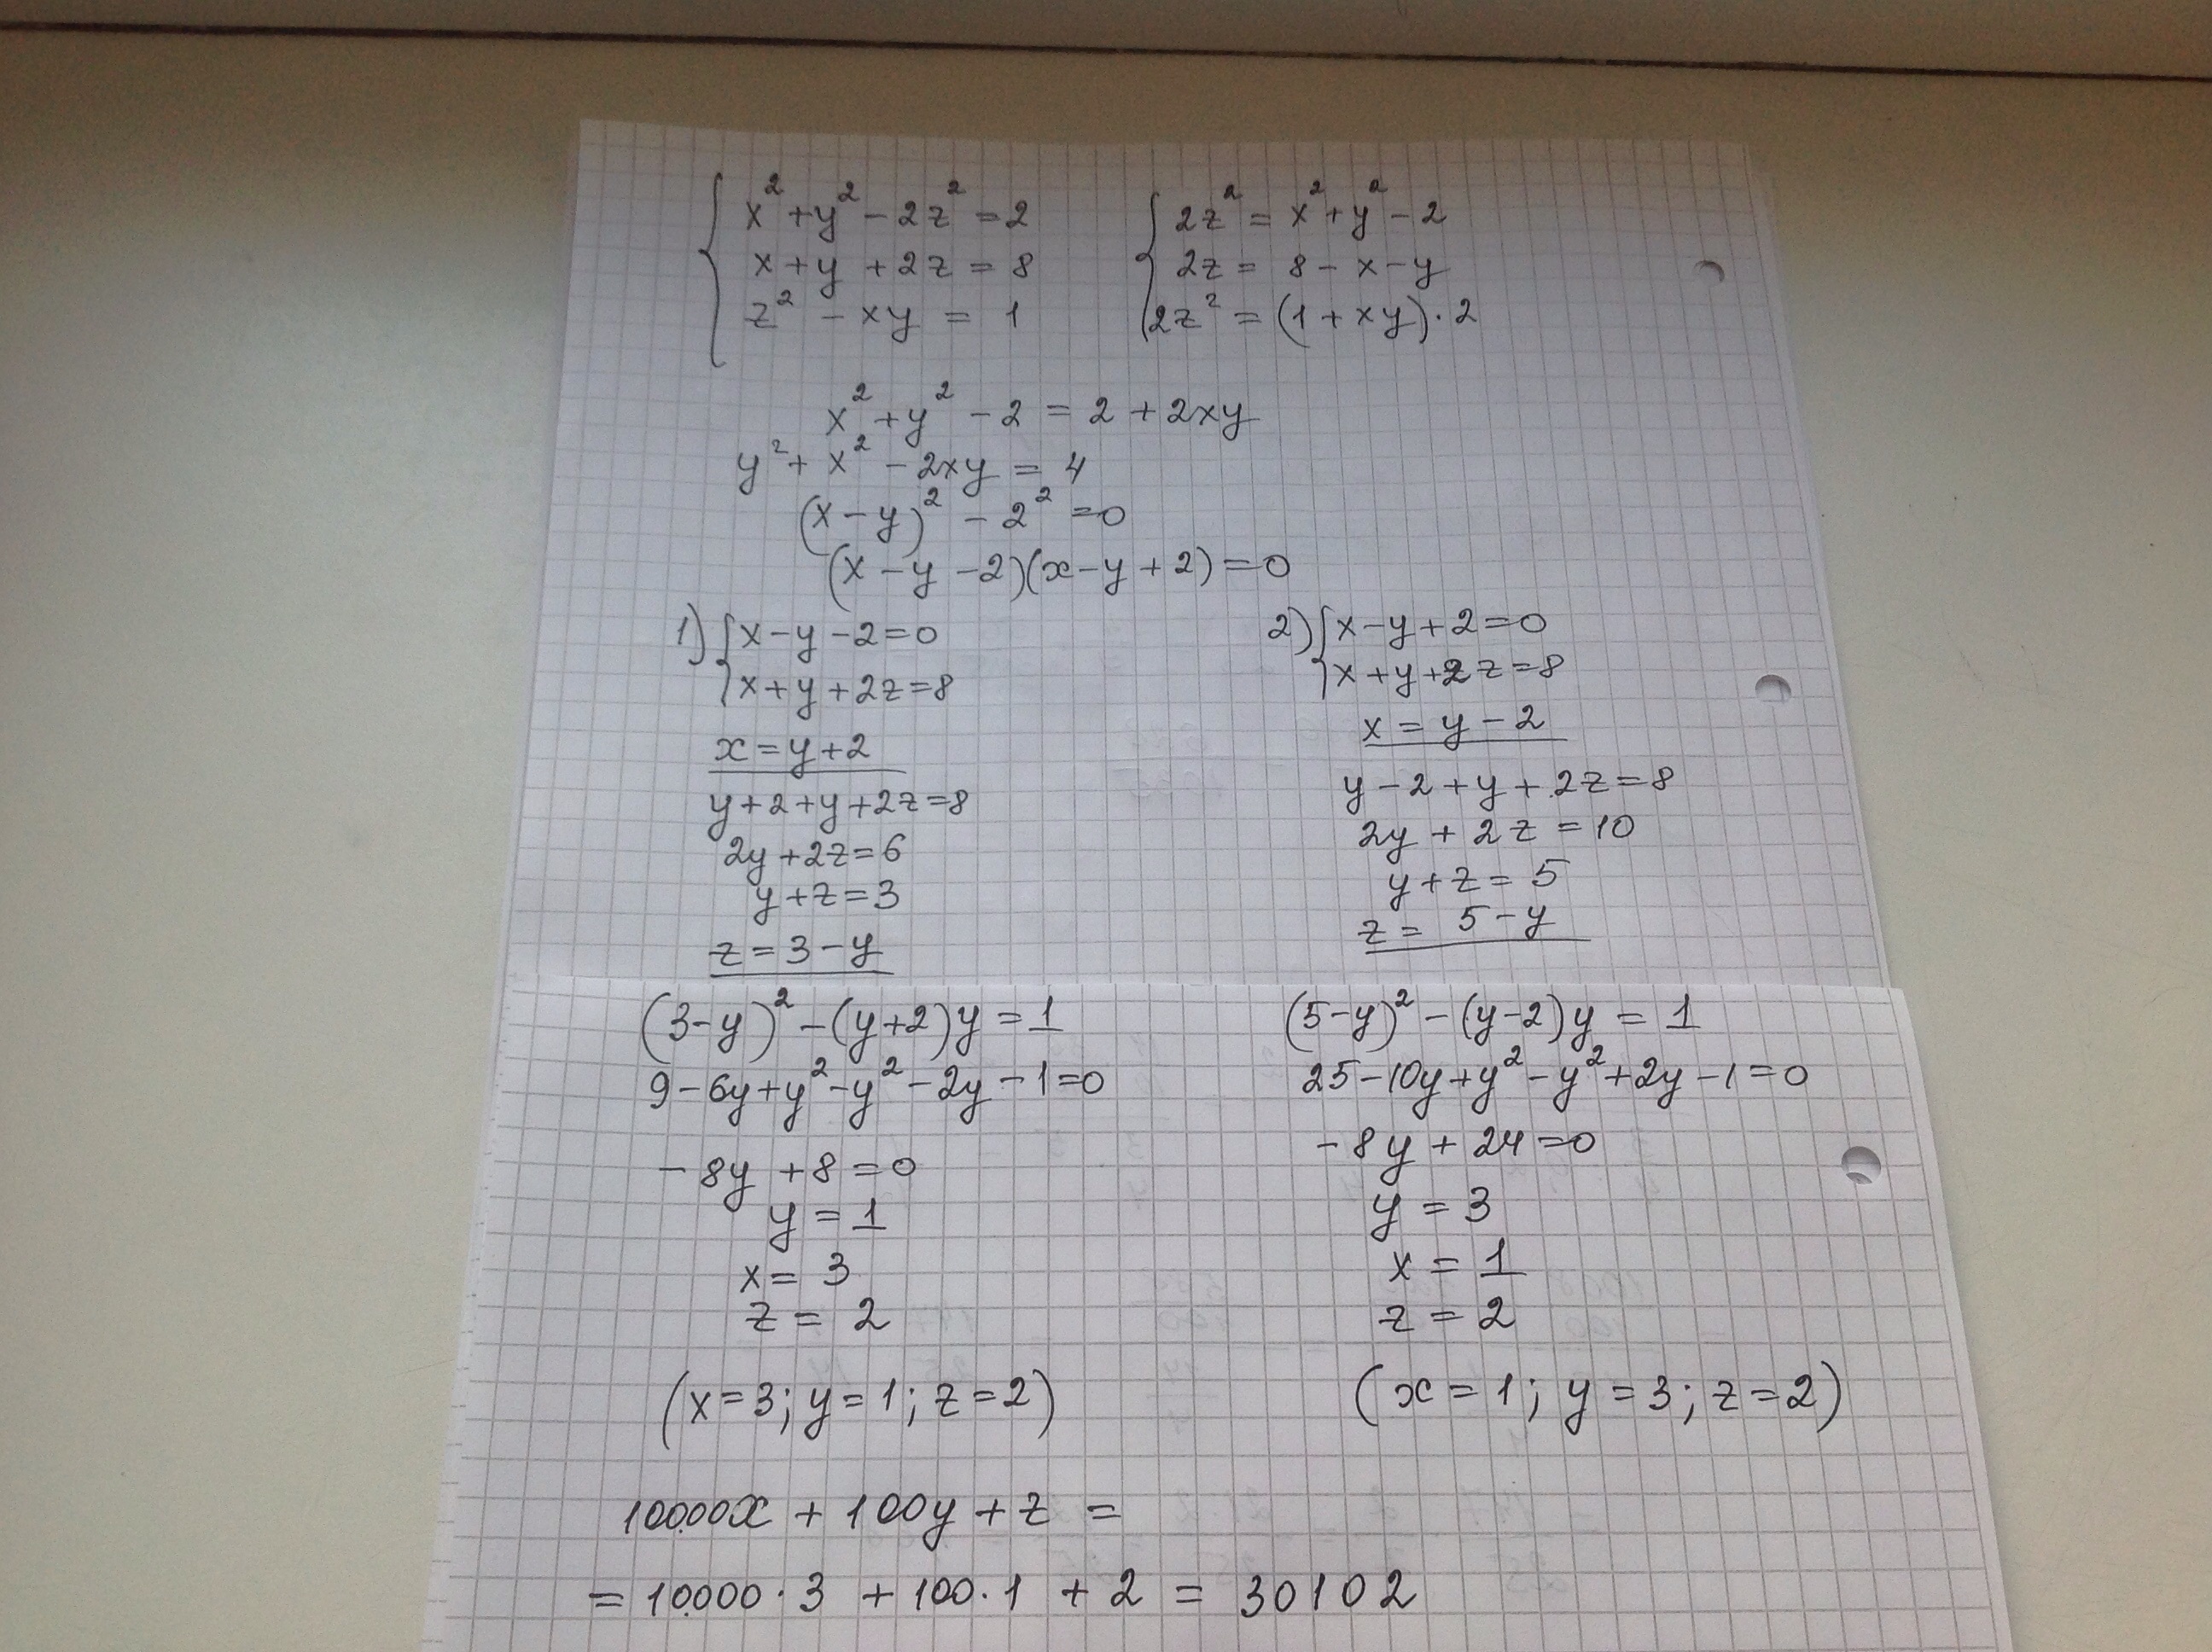 x² + y² - 2z² = 2
x + y + 2z = 8
z² - xy = 1
2z² = x² + y² - 2
2z = 8 - x - y
2z² = (1 + xy) · 2
x² + y² - 2 = 2 + 2xy
y² + x² - 2xy = 4
(x - y)² - 2² = 0
(x - y - 2)(x - y + 2) = 0
1) x - y - 2 = 0
x + y + 2z = 8
x = y + 2
y + 2 + y + 2z = 8
2y + 2z = 6
y + z = 3
z = 3 - y
(3 - y)² - (y + 2)y = 1
9 - 6y + y² - y² - 2y - 1 = 0
- 8y + 8 = 0
y = 1
x = 3
z = 2
(x = 3; y = 1; z = 2)
2) x - y + 2 = 0
x + y + 2z = 8
x = y - 2
y - 2 + y + 2z = 8
2y + 2z = 10
y + z = 5
z = 5 - y
(5 - y)² - (y - 2)y = 1
25 - 10y + y² - y² + 2y - 1 = 0
- 8y + 24 = 0
y = 3
x = 1
z = 2
(x = 1; y = 3; z = 2)
10000x + 100y + z =
= 10000 · 3 + 100 · 1 + 2 = 30102